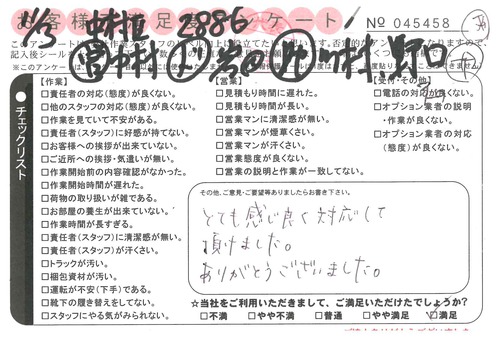 お客様満足度アンケート
No 045458
11/3
2886
このアンケートは
チェックリスト
【作業】
□責任者の対応(態度)が良くない。
□他のスタッフの対応(態度)が良くない。
□作業を見ていて不安がある。
□責任者(スタッフ)に好感が持てない。
□お客様への挨拶が出来ていない。
□ご近所への挨拶・気遣いが無い。
□作業開始前の内容確認がなかった。
□作業開始時間が遅れた。
□荷物の取り扱いが雑である。
□お部屋の養生が出来ていない。
□作業時間が長すぎる。
□責任者(スタッフ)に清潔感が無い。
□責任者(スタッフ)が汗くさい。
□トラックが汚い。
□梱包資材が汚い。
□運転が不安(下手)である。
□靴下の履き替えをしてない。
□スタッフにやる気がみられない。
【営業】
□見積もり時間に遅れた。
□見積もり時間が長い。
□営業マンに清潔感が無い。
□営業マンが煙草くさい。
□営業マンが汗くさい。
□営業態度が良くない。
□営業の説明と作業が一致してない。
【受付・その他】
□電話の対応が良くない。
□オプション業者の説明
・作業が良くない。
□オプション業者の対応
(態度)が良くない。
その他、ご意見・ご要望等ありましたらお書き下さい。
とても感じ良く対応して
頂けました。
ありがとうございました。
☆当社をご利用いただきまして、ご満足いただけたでしょうか?
□不満 □やや不満 □普通 □やや満足 ☑満足